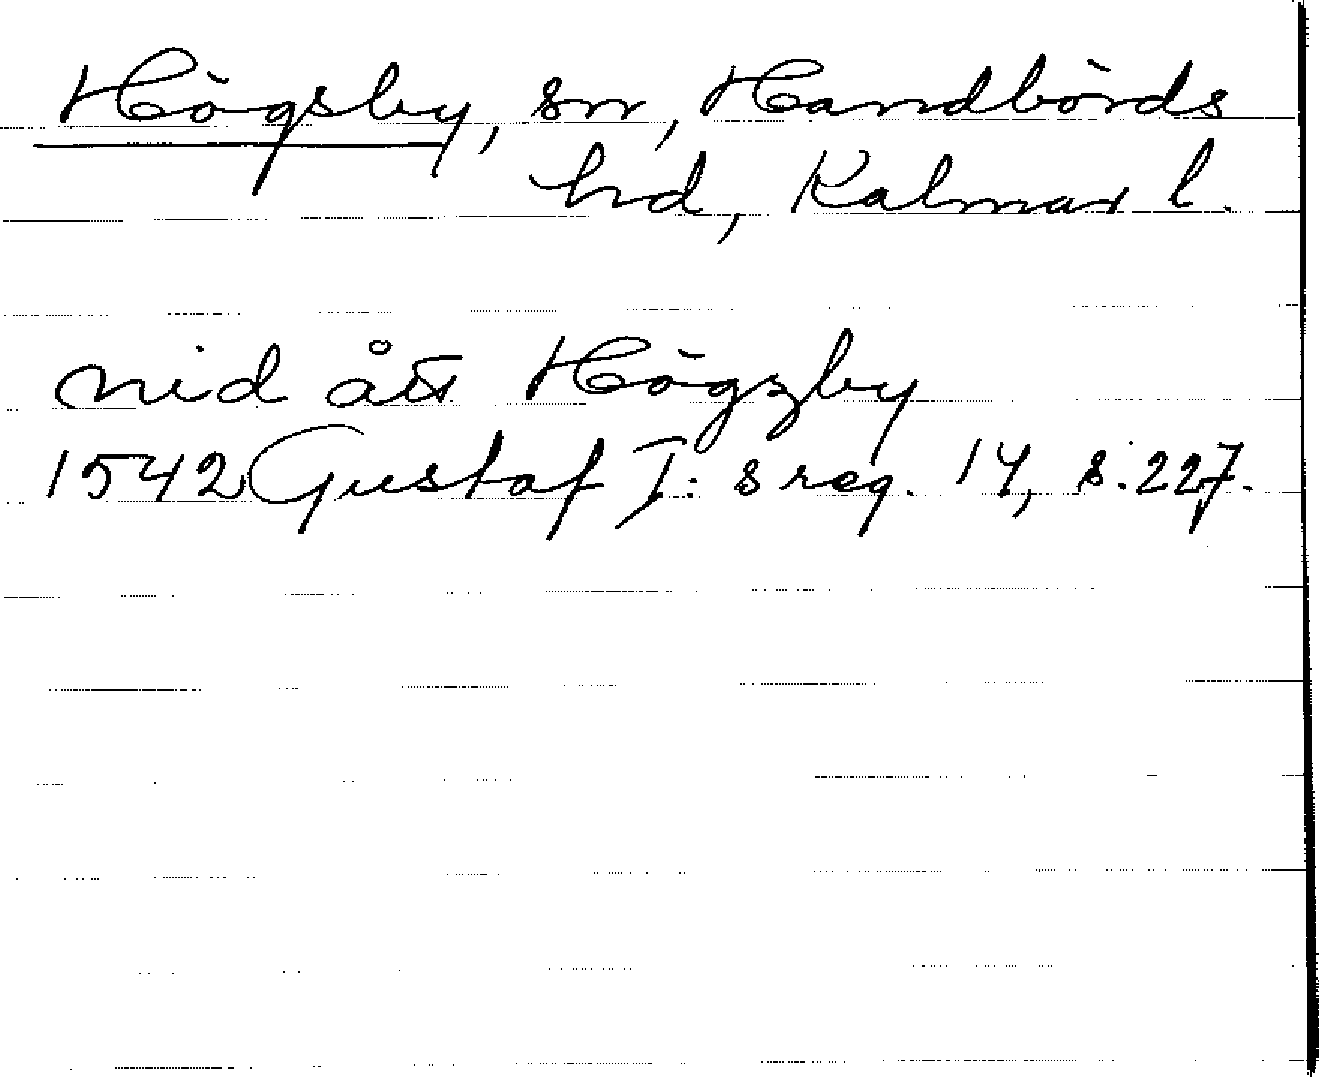 Högsby, sn, Handbörds
hd, Kalmar l.
nid ått Högzby
1542 Gustaf I:s reg. 14, s. 227.